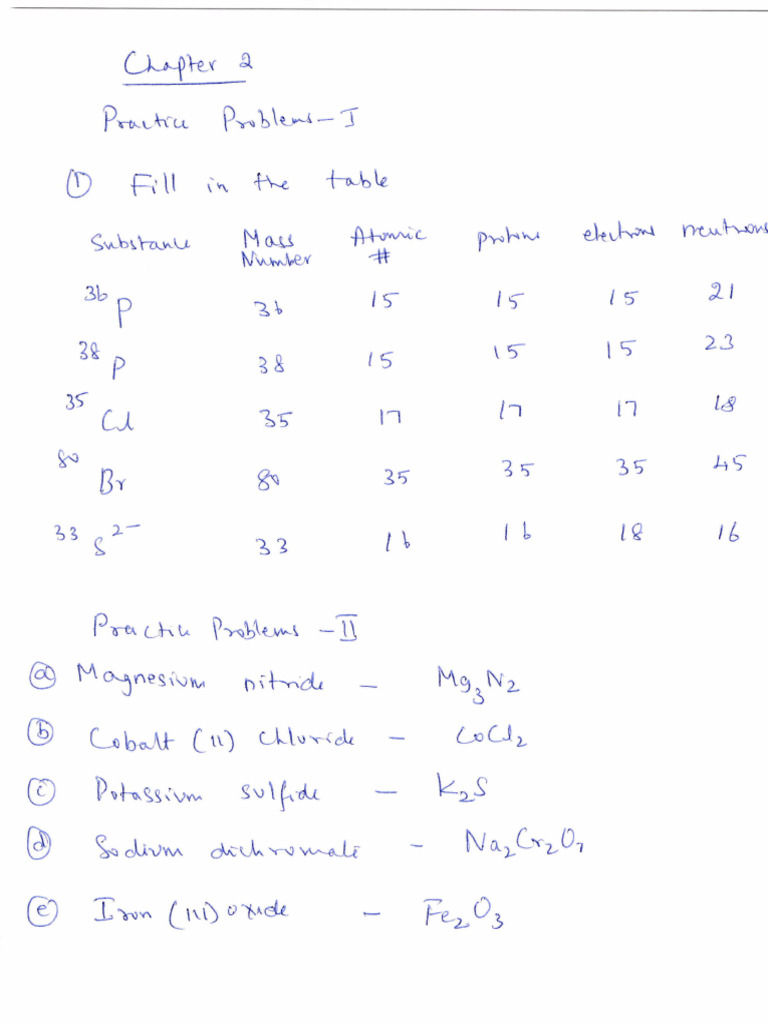 Chapter 2
Practice Problems - I
① Fill in the table
Substance Mass Number Atomic # protons electrons neutrons
³⁶P 36 15 15 15 21
³⁸P 38 15 15 15 23
³⁵Cl 35 17 17 17 18
⁸⁰Br 80 35 35 35 45
³³S²⁻ 33 16 16 18 16
Practice Problems - II
ⓐ Magnesium nitride - Mg₃N₂
ⓑ Cobalt (II) Chloride - CoCl₂
ⓒ Potassium sulfide - K₂S
ⓓ Sodium dichromate - Na₂Cr₂O₇
ⓔ Iron (III) oxide - Fe₂O₃